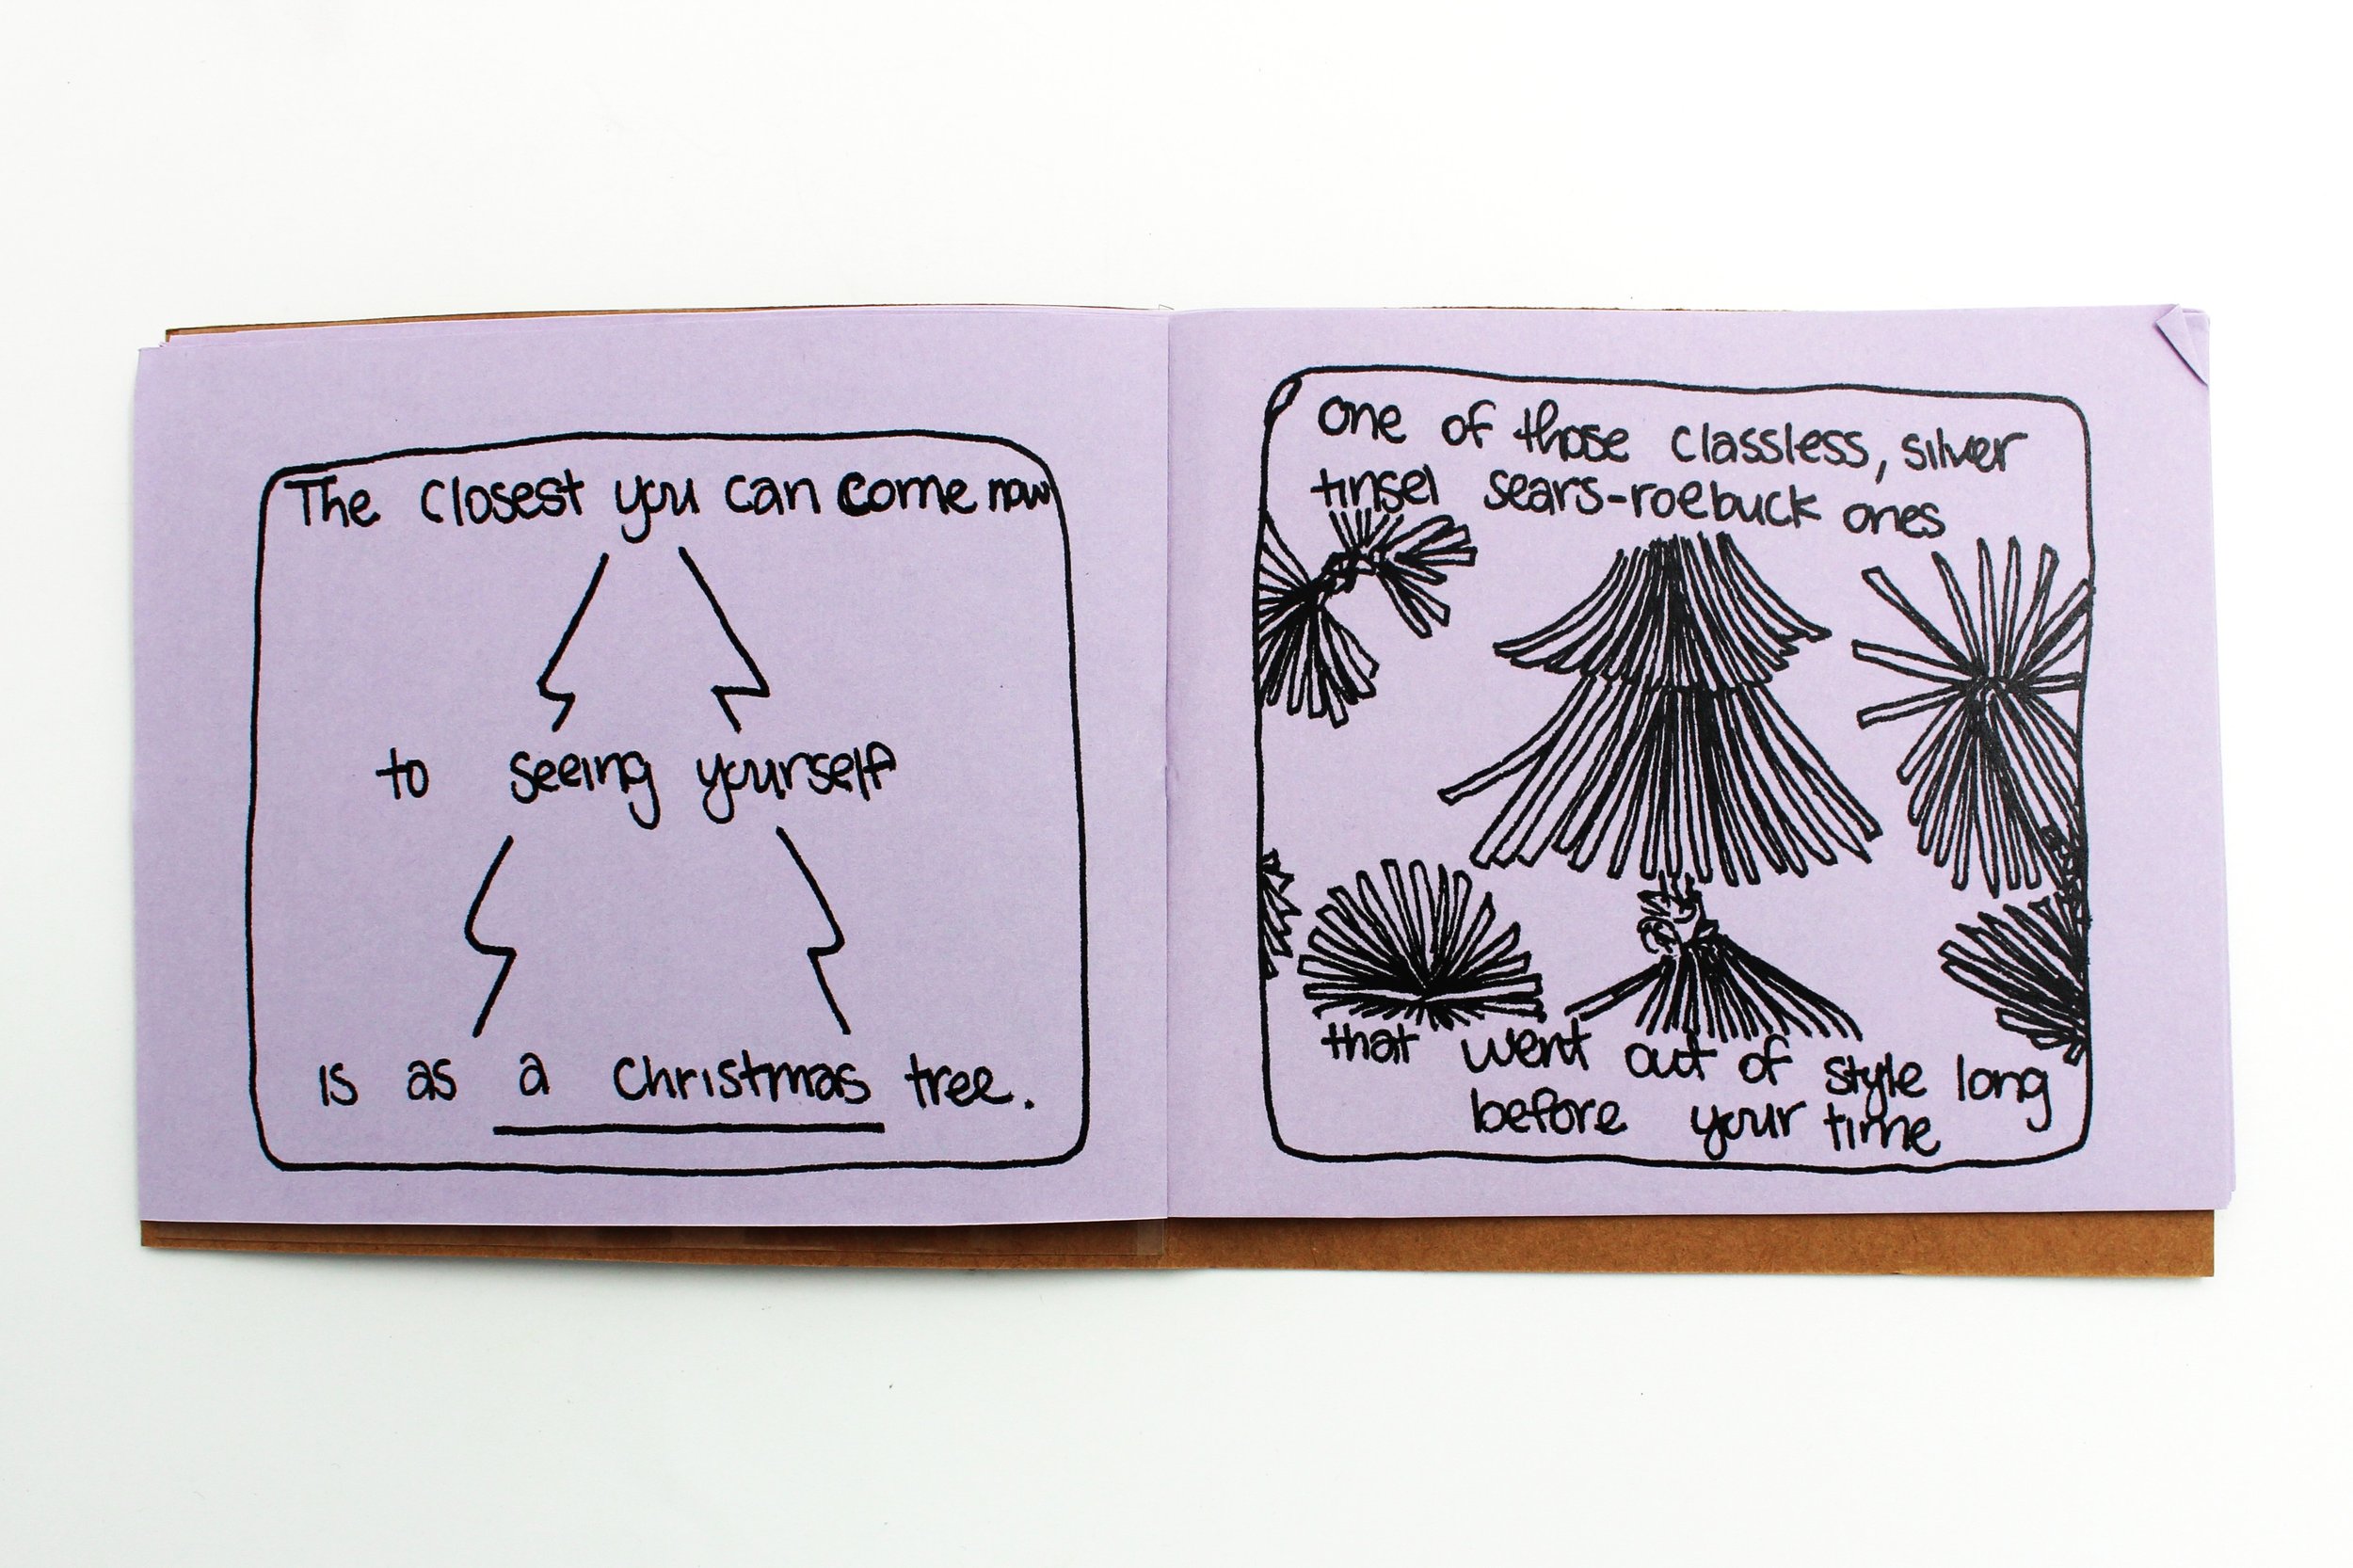 The closest you can come now
to seeing yourself
is as a christmas tree.
one of those classless, silver
tinsel sears-roebuck ones
that went out of style long
before your time